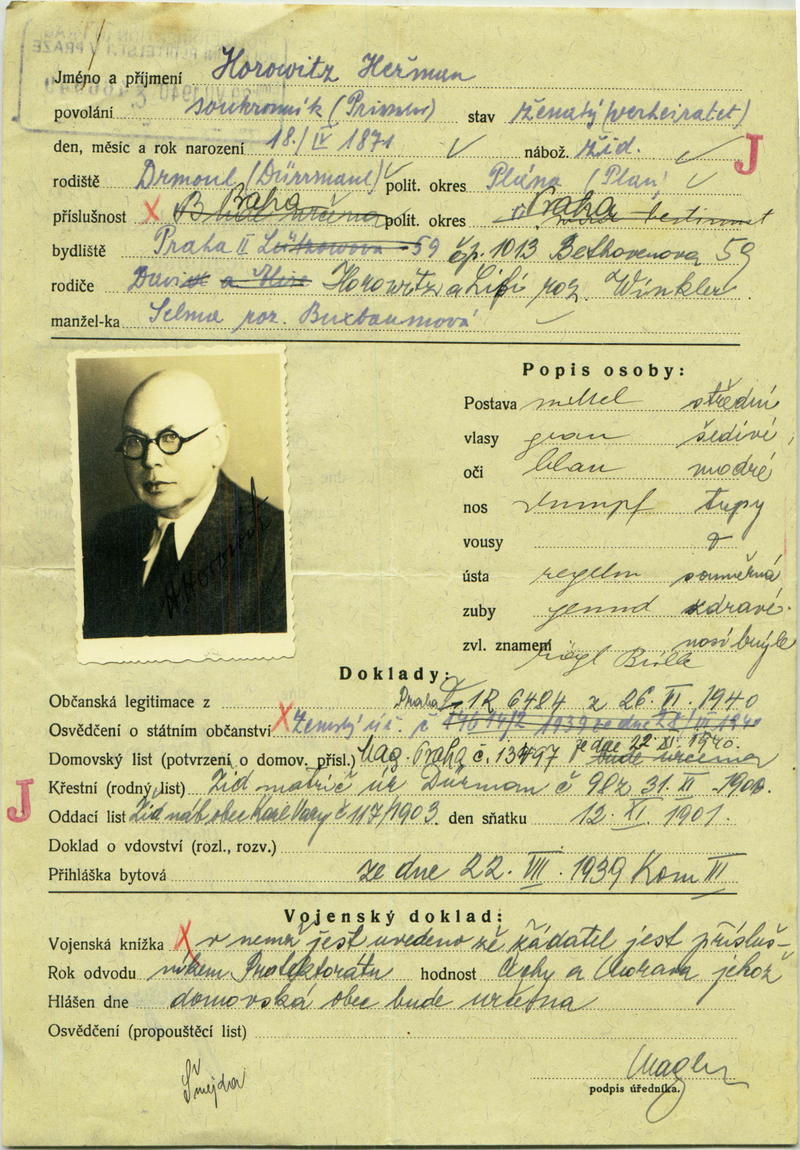 V PRAZE
1940
Jméno a příjmení Horowitz Heřman
povolání soukromník (Privater) stav ženatý (verheiratet)
den, měsíc a rok narození 18./IV 1871 nábož. žid.
J
rodiště Drmoul (Dürrmaul) polit. okres Plána (Plan)
příslušnost X Praha polit. okres Praha
bydliště Praha II Lützowova 59 čp. 1013 Bethovenova 59
rodiče David a Horowitz a Lifi roz. Winkler
manžel-ka Selma roz. Buxbaumová
Popis osoby:
Postava mittel střední
vlasy grau šedivé
oči blau modré
nos stumpf tupý
vousy
ústa regelm souměrná
zuby gesund zdravé
zvl. znamení nosí brýle
trägt Brille
H Horowitz
Doklady:
Občanská legitimace z Praha č. 1R 6484 z 26. VI. 1940
Osvědčení o státním občanství X Zemský úř. č 1939 ze dne
Domovský list (potvrzení o domov. přísl.) Mag. Praha č. 13497 ze dne 22 XI. 1940. bude určena
Křestní (rodný list) Žid matrič úř Dürman č 98 z 31. XII 1900.
J
Oddací list Žid náb. obec Karl. Vary č 117/1903 den sňatku 12. XI. 1901.
Doklad o vdovství (rozl., rozv.)
Přihláška bytová ze dne 22. VIII. 1939 Kom III
Vojenský doklad:
Vojenská knížka X v němž jest uvedeno že žadatel jest přísluš-
Rok odvodu níkem Protektorátu hodnost Čechy a Morava jehož
Hlášen dne domovská obec bude určena
Osvědčení (propouštěcí list)
Šmejda
podpis úředníka.